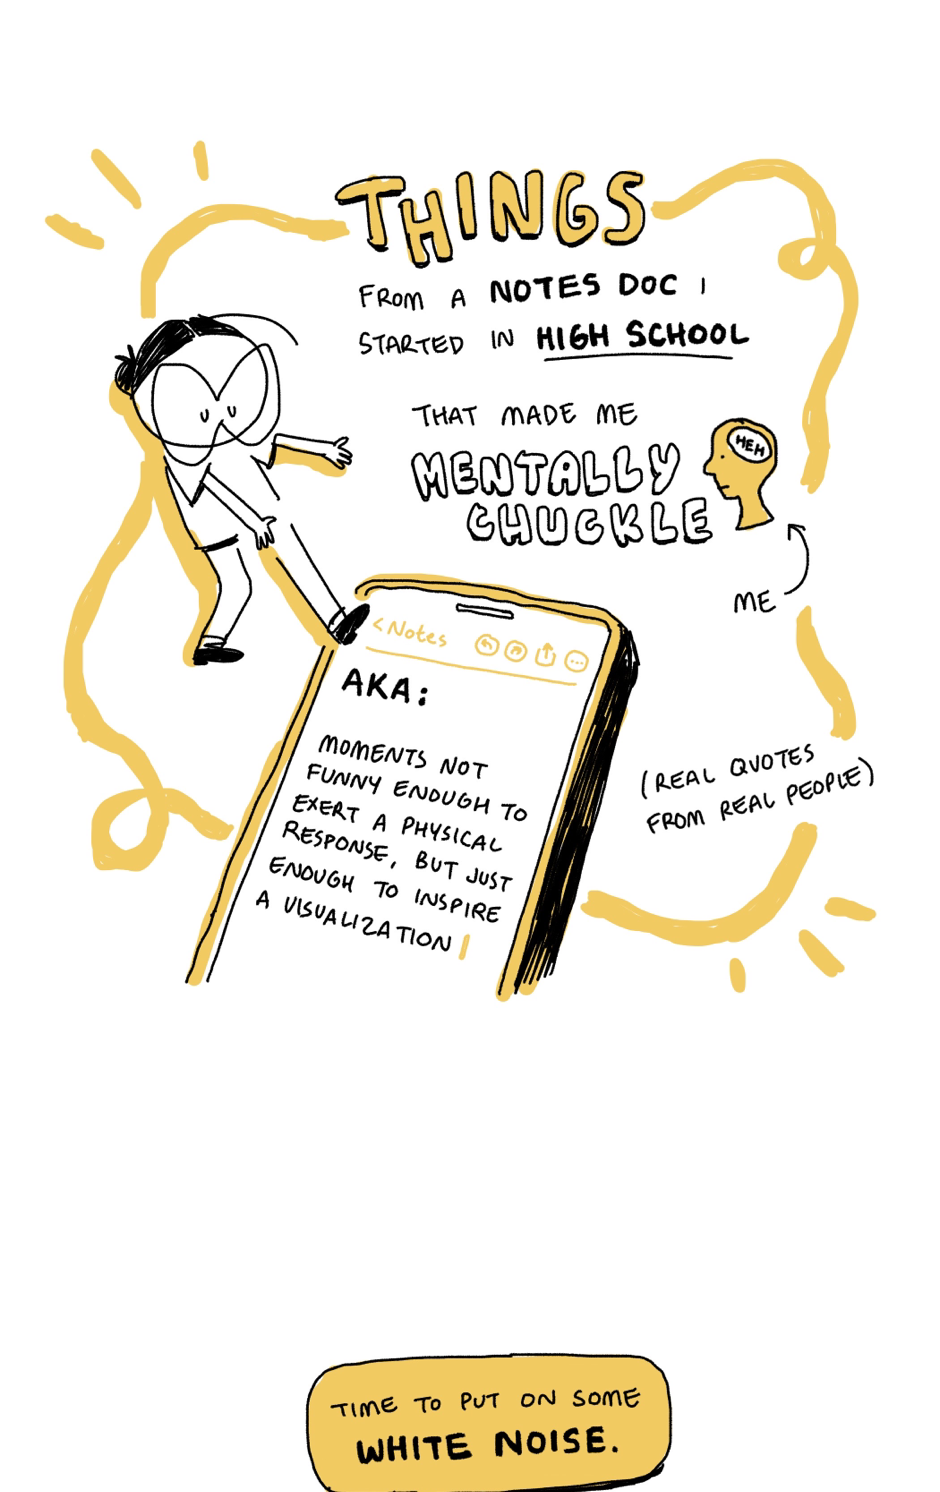 THINGS
FROM A NOTES DOC I
STARTED IN HIGH SCHOOL
THAT MADE ME
MENTALLY
CHUCKLE
HEH
ME
<Notes
AKA:
MOMENTS NOT
FUNNY ENOUGH TO
EXERT A PHYSICAL
RESPONSE, BUT JUST
ENOUGH TO INSPIRE
A VISUALIZATION
(REAL QUOTES
FROM REAL PEOPLE)
TIME TO PUT ON SOME
WHITE NOISE.